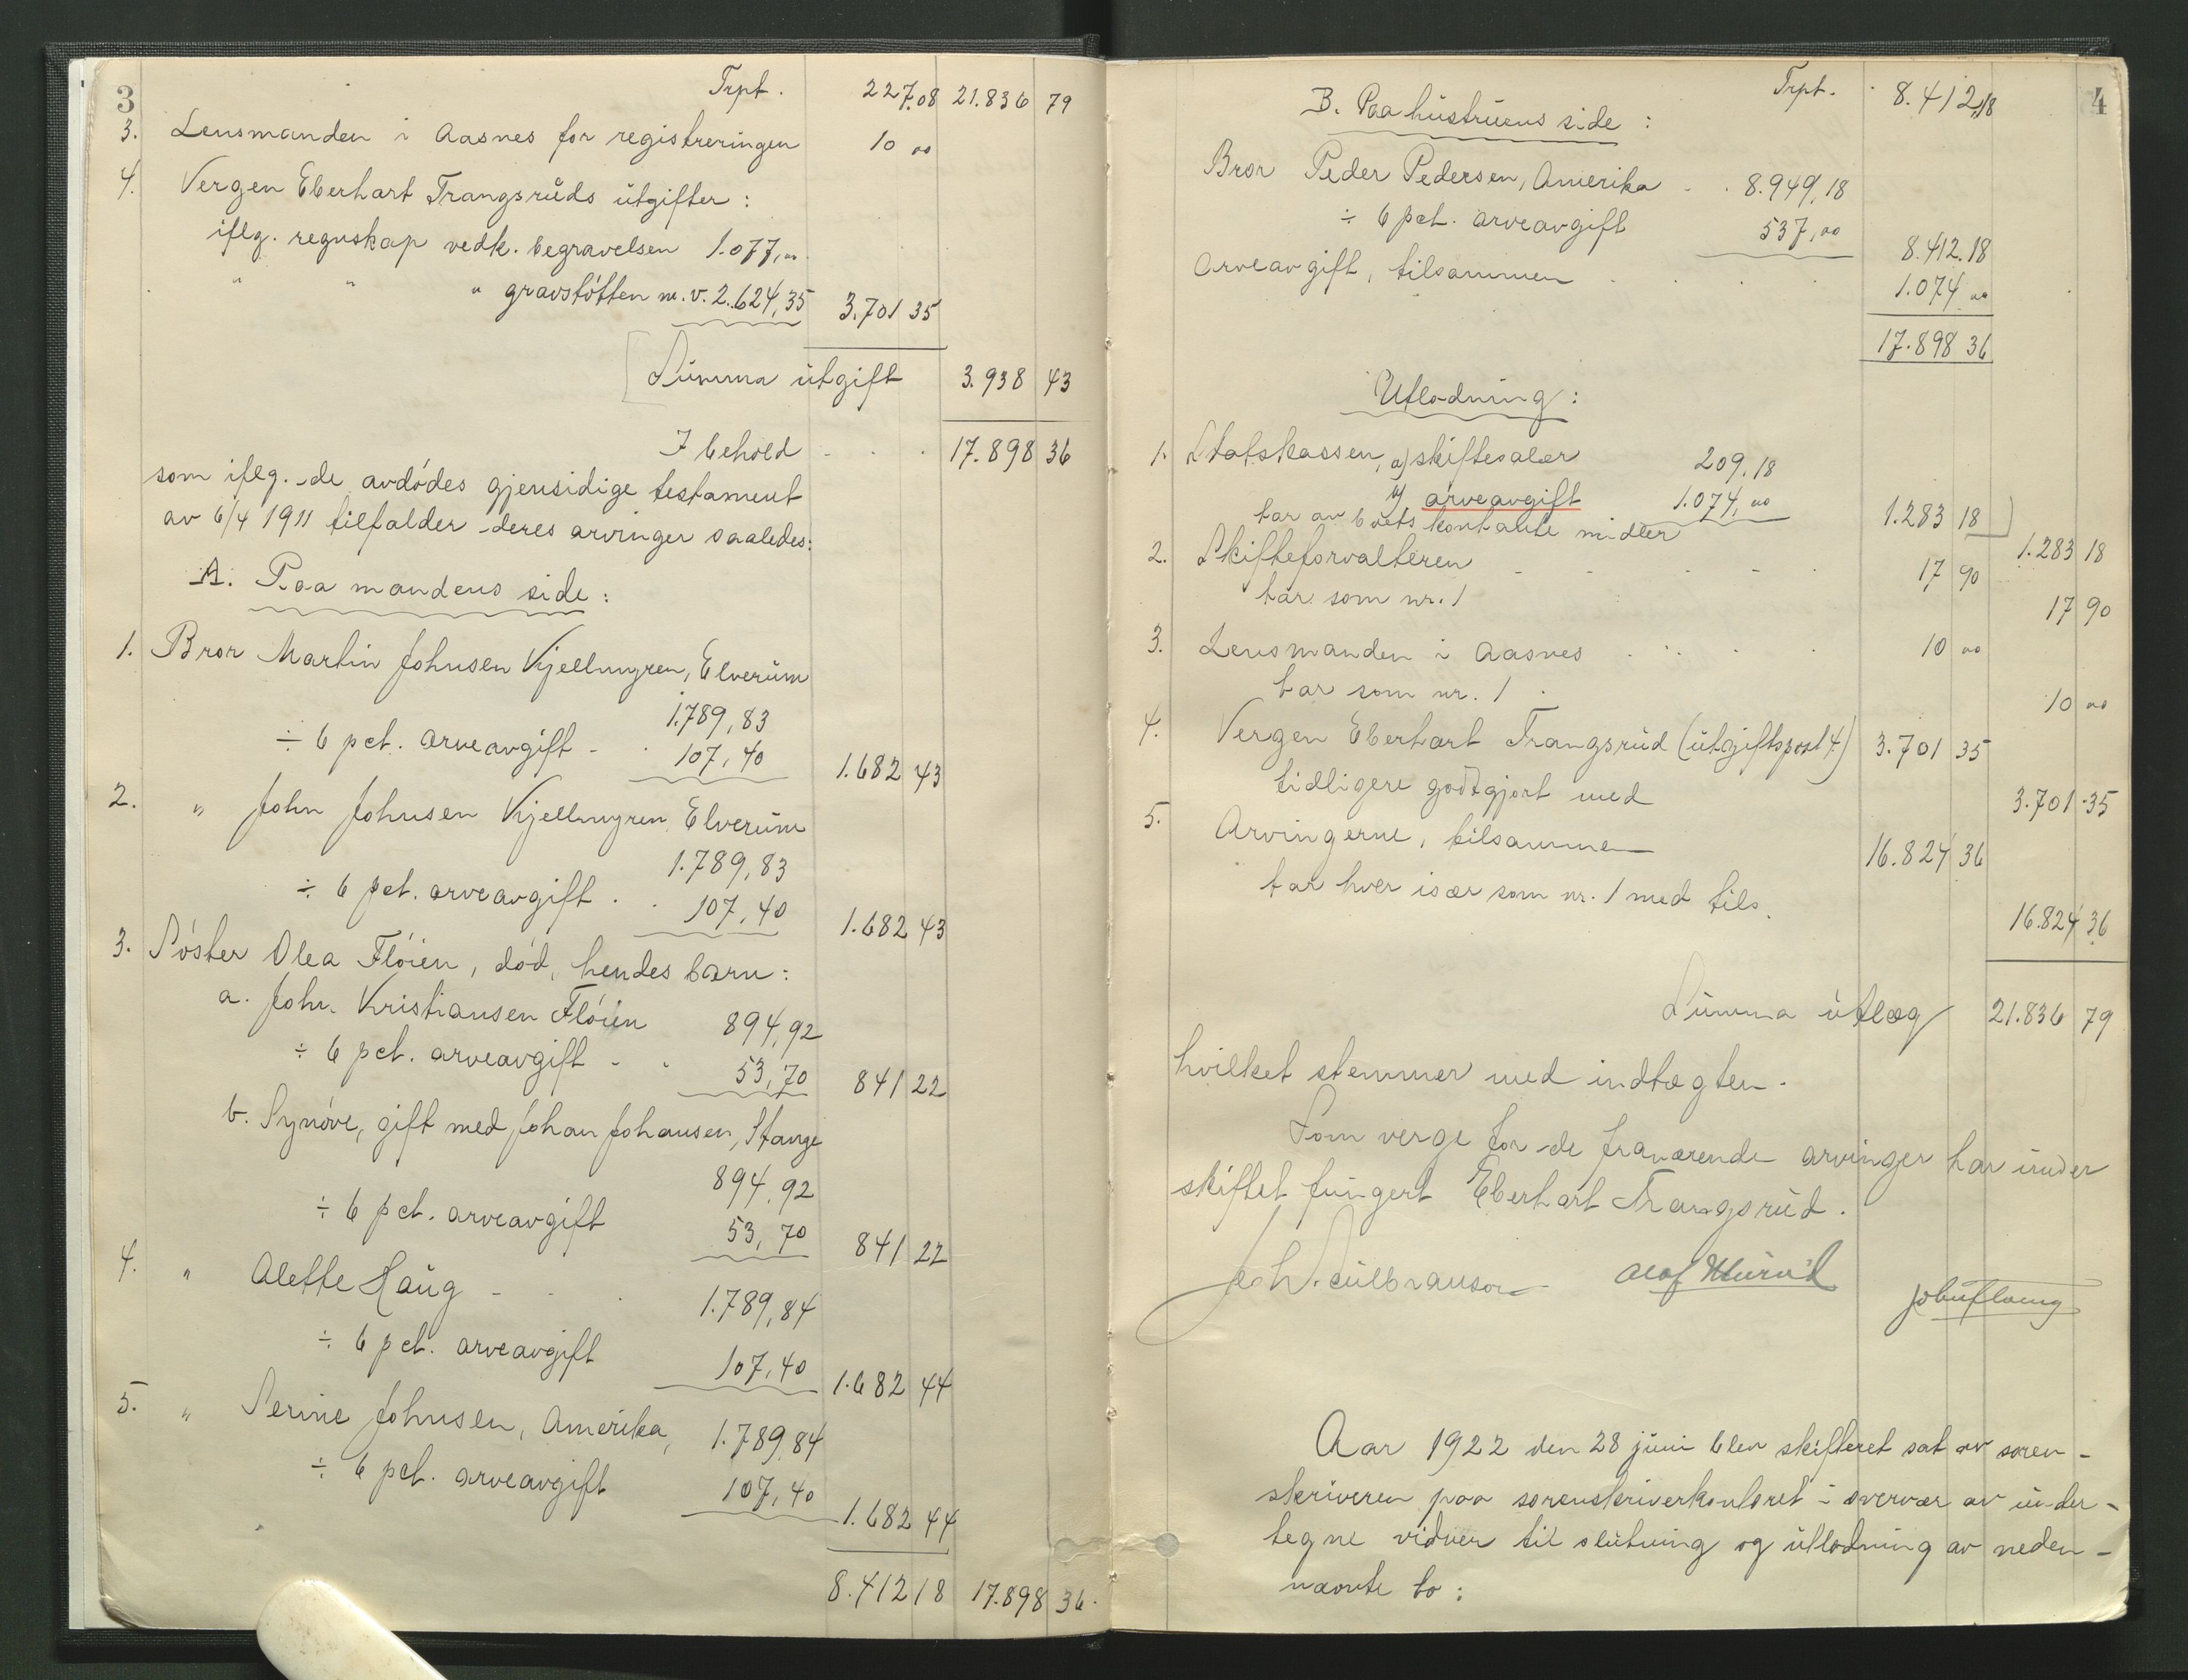 3
Trpt. 227.08 21.836 79
3. Lensmanden i Aasnes for registreringen 10 00
4. Vergen Eberhart Trangsruds utgifter :
iflg. regnskap vedk. begravelsen 1.077,00
" " " gravstøtten m.v. 2.624,35 3.701 35
Summa utgift 3.938 43
I behold 17.898 36
som iflg. de avdødes gjensidige testament
av 6/4 1911 tilfalder deres arvinger saaledes:
A. Paa mandens side :
1. Bror Martin Johnsen Kjellmyren, Elverum
1.789,83
÷ 6 pct. arveavgift - 107,40 1.682 43
2. " John Johnsen Kjellmyren, Elverum
1.789,83
÷ 6 pct. arveavgift . 107,40 1.682 43
3. Søster Olea Fløien, død, hendes barn :
a. John Kristiansen Fløien 894,92
÷ 6 pct. arveavgift - 53,70 841 22
b. Synøve, gift med Johan Johansen, Stange
894,92
÷ 6 pct. arveavgift 53,70 841 22
4. " Alette Haug - 1.789,84
÷ 6 pct. arveavgift 107,40 1.682 44
5. " Serine Johnsen, Amerika, 1.789,84
÷ 6 pct. arveavgift 107,40 1.682 44
8.412 18 17.898 36.
4
Trpt. 8.412,18
B. Paa hustruens side :
Bror Peder Pedersen, Amerika - . 8.949,18
÷ 6 pct. arveavgift 537,00 8.412.18
Arveavgift, tilsammen 1.074 00
17.898 36
Utlodning :
1. Statskassen, a) skiftesalær 209.18
b) arveavgift 1.074,00 1.283 18
tar av boets kontante midler 1.283 18
2. Skifteforvalteren - - - - 17 90
tar som nr. 1 17 90
3. Lensmanden i Aasnes 10 00
tar som nr. 1 . 10 00
4. Vergen Eberhart Trangsrud (utgiftspost 4) 3.701 35
tidligere godtgjort med 3.701 35
5. Arvingerne, tilsammen 16.824 36
tar hver især som nr. 1 med tils. 16.824 36
Summa utlæg 21.836 79
hvilket stemmer med indtægten.
Som verge for de fraværende arvinger har under
skiftet fungert Eberhart Trangsrud.
Aar 1922 den 28 juni blev skifteret sat av soren-
skriveren paa sorenskriverkontoret i overvær av under-
tegne vidner til slutning og utlodning av neden-
nævnte bo :